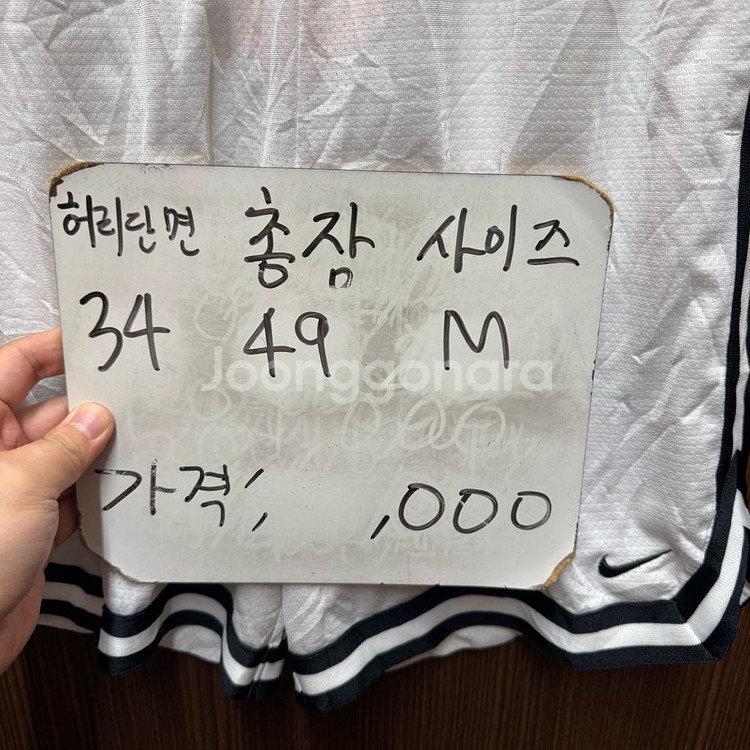 허리단면 총장 사이즈
34 49 M
Joonggonara
가격; ,000